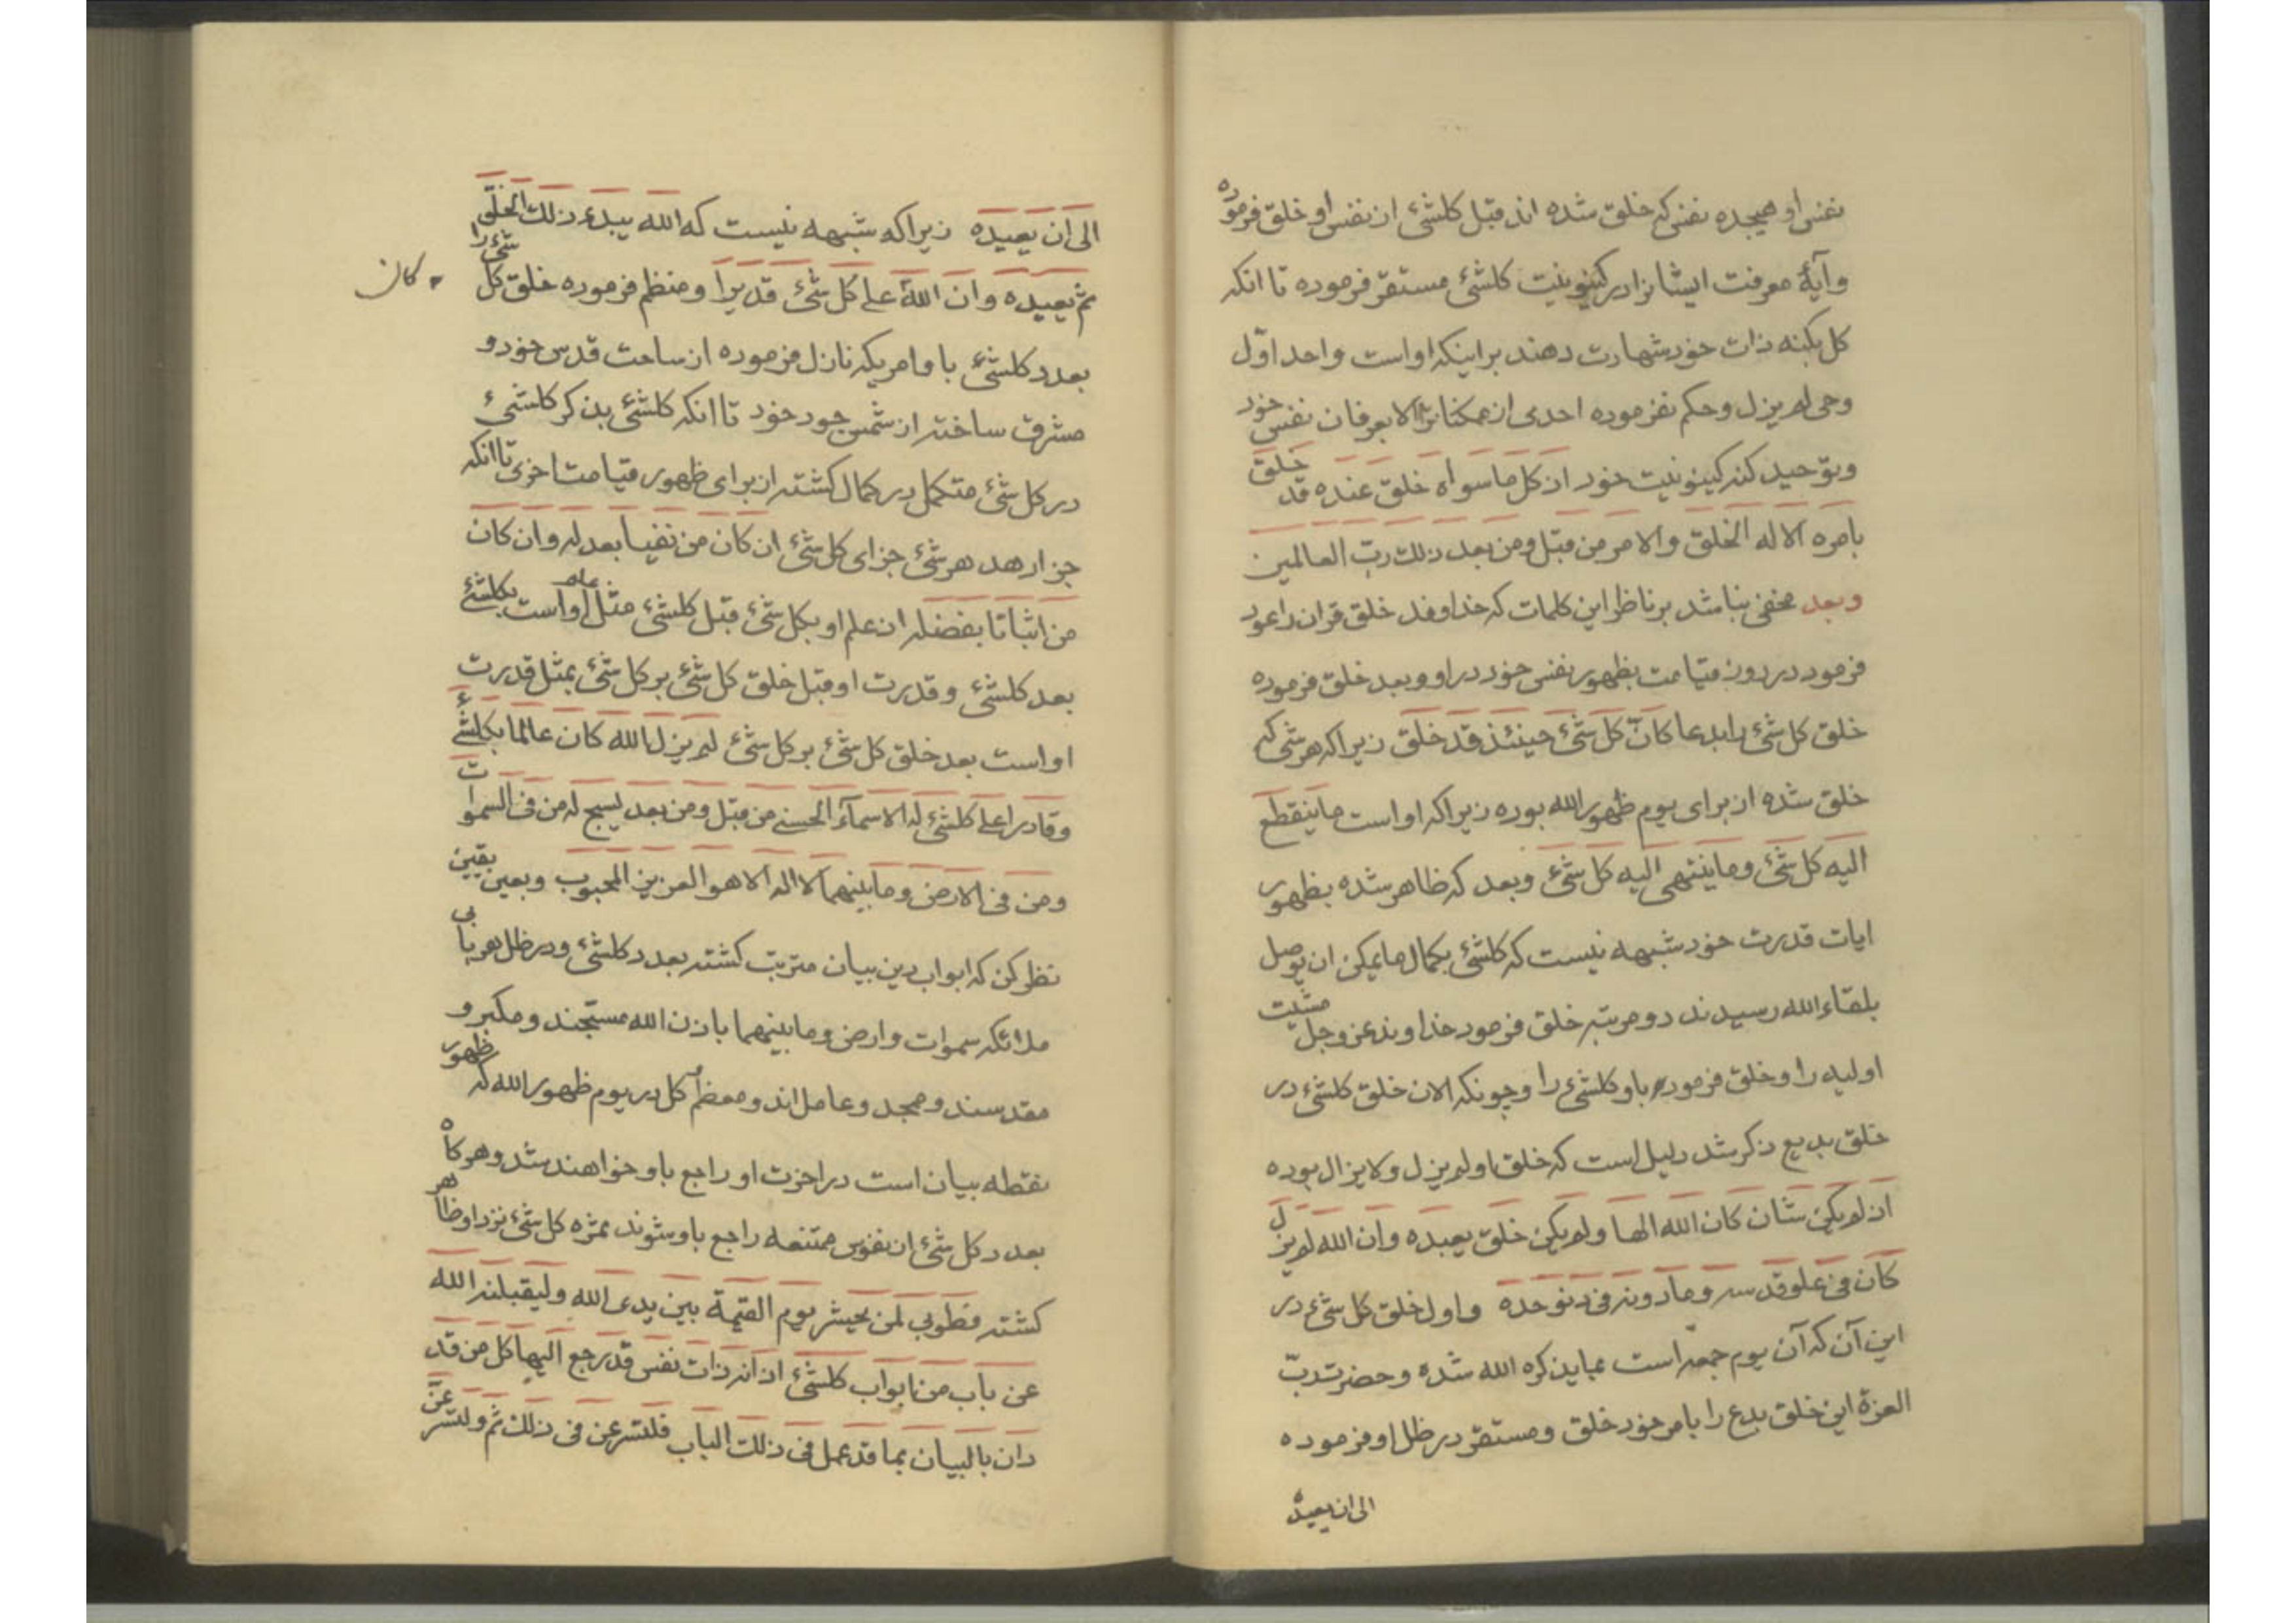 نفس او هیجده نفس که خلق شده اند قبل کلشئ از نفس او خلق فرموده
وآیهٔ معرفت ایشانرا در کینونیت کلشئ مستقر فرموده تا انکه
کل بکنه ذات خود شهادت دهند بر اینکه اواست واحد اوّل
وحی لم یزل وحکم نفرموده احدی از ممکنات را الا بعرفان نفس خود
وبتوحید کنه کینونیت خود اذ کل ما سواه خلق عنده قد خلق
بامره الا له الخلق والامر من قبل ومن بعد ذلک ربّ العالمین
وبعد مخفی نباشد بر ناظر این کلمات که خداوند خلق قران را عود
فرمود در یوم قیامت بظهور نفس خود در او وبعد خلق فرموده
خلق کل شئ را بدعا کانّ کل شئ حینئذ قد خلق زیرا که هر شئ که
خلق شده از برای یوم ظهور الله بوده زیرا که اواست ما ینقطع
الیه کل شئ وما ینتهی الیه کل شئ وبعد که ظاهر شده بظهور
ایات قدرت خود شبهه نیست که کلشئ بکمال ما یمکن ان یوصل
بلقاء الله رسیدند دو مرتبه خلق فرمود خداوند عز وجل مشیّت
اولیه را وخلق فرموده باو کلشئ را وچونکه الان خلق کلشئ در
خلق بدیع ذکر شد دلیل است که خلق او لم یزل ولا یزال بوده
اذ لم یکن شان کان الله الها ولم یکن خلق یعبده وان الله لم یزل
کان فی علو قدسه وما دونه فی دنو حده واول خلق کل شئ در
این آن که آن یوم جمعه است بما یذکره الله شده وحضرت ربّ
العزة این خلق بدع را بامر خود خلق ومستقر در ظل او فرموده
الی ان یعیده
الی ان یعیده زیرا که شبهه نیست که الله یبدء ذلک الخلق
ثم یعیده وان الله علی کل شئ قدیرا ومنظم فرموده خلق کل شئ را
کان
بعدد کلشئ باوامریکه نازل فرموده از ساحت قدس خود و
مشرق ساخته از شمس جود خود تا انکه کلشئ بذکر کلشئ
در کل شئ متکمل در کمال کشته از برای ظهور قیامت اخری تا انکه
جزا دهد هر شئ جزای کل شئ ان کان من نفیا بعدله وان کان
من اثباتا بفضله ان علم او بکل شئ قبل کلشئ مثل علم اواست بکلشئ
بعد کلشئ وقدرت او قبل خلق کل شئ بر کل شئ بمثل قدرت
اواست بعد خلق کل شئ بر کل شئ لم یزل الله کان عالما بکلشئ
وقادرا علی کلشئ له الاسماء الحسنی من قبل ومن بعد یسبح له من فی السموات
ومن فی الارض وما بینهما لا اله الا هو العزیز المحبوب وبعین یقین
نظر کن که ابواب دین بیان مترتب کشته بعدد کلشئ ودر ظل هر بابی
ملائکه سموات وارض وما بینهما باذن الله مسبّحند ومکبر و
مقدسند وممجد وعامل اند ومعظم کل در یوم ظهور الله که ظهور
نقطه بیان است در اخرت او راجع باو خواهند شد وهر کاه
بعدد کل شئ از نفوس ممتنعه راجع باو شوند ثمره کل شئ نزد او ظاهر
کشته فطوبی لمن یحیشر یوم القیمة بین یدی الله ولیقبلنه الله
عن باب من ابواب کلشئ اذ انه ذات نفس قد رجع الیها کل من قد
دان بالبیان بما قد عمل فی ذلک الباب فلتسرعن فی ذلک ثم ولتسرعنّ